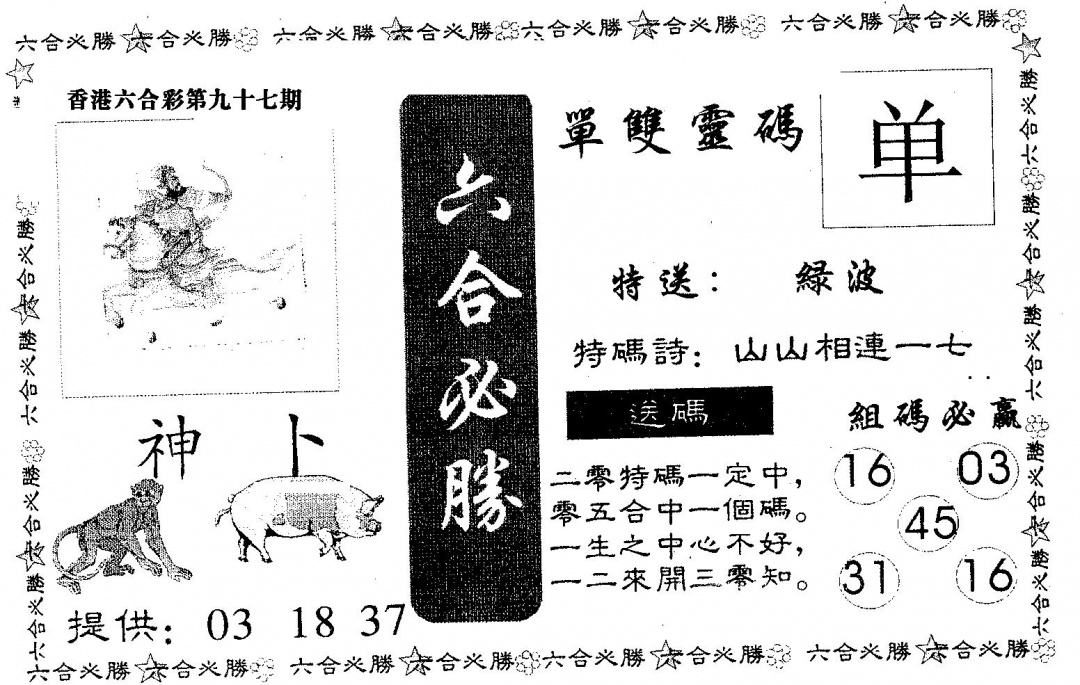 六合必勝 六合必勝 六合必勝 六合必勝 六合必勝 六合必勝 六合必勝 六合必勝
香港六合彩第九十七期
神 卜
提供: 03 18 37
六合必勝
單雙靈碼
单
特送: 緑波
特碼詩: 山山相連一七
送碼
二零特碼一定中,
零五合中一個碼。
一生之中心不好,
一二來開三零知。
組碼必贏
16 03
45
31 16
六合必勝 六合必勝 六合必勝
六合必勝 六合必勝 六合必勝 六合必勝 六合必勝
六合必勝 六合必勝 六合必勝 六合必勝 六合必勝 六合必勝 六合必勝 六合必勝